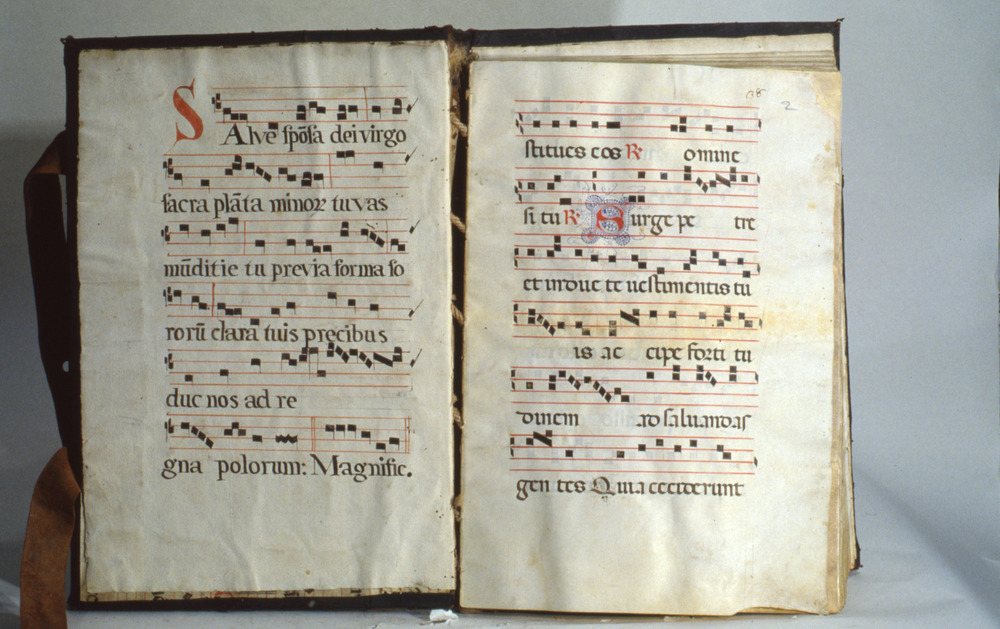 SAlve spōsa dei virgo
sacra plāta minor tu vas
mūditie tu previa forma so
rorū clara tuis precibus
duc nos ad re
gna polorum: Magnific.
98
2
stitues eos R omine
si tu R Surge pe tre
et indue te vestimentis tu
is ac cipe forti tu
dinem ad salvandas
gen tes Quia ceciderunt